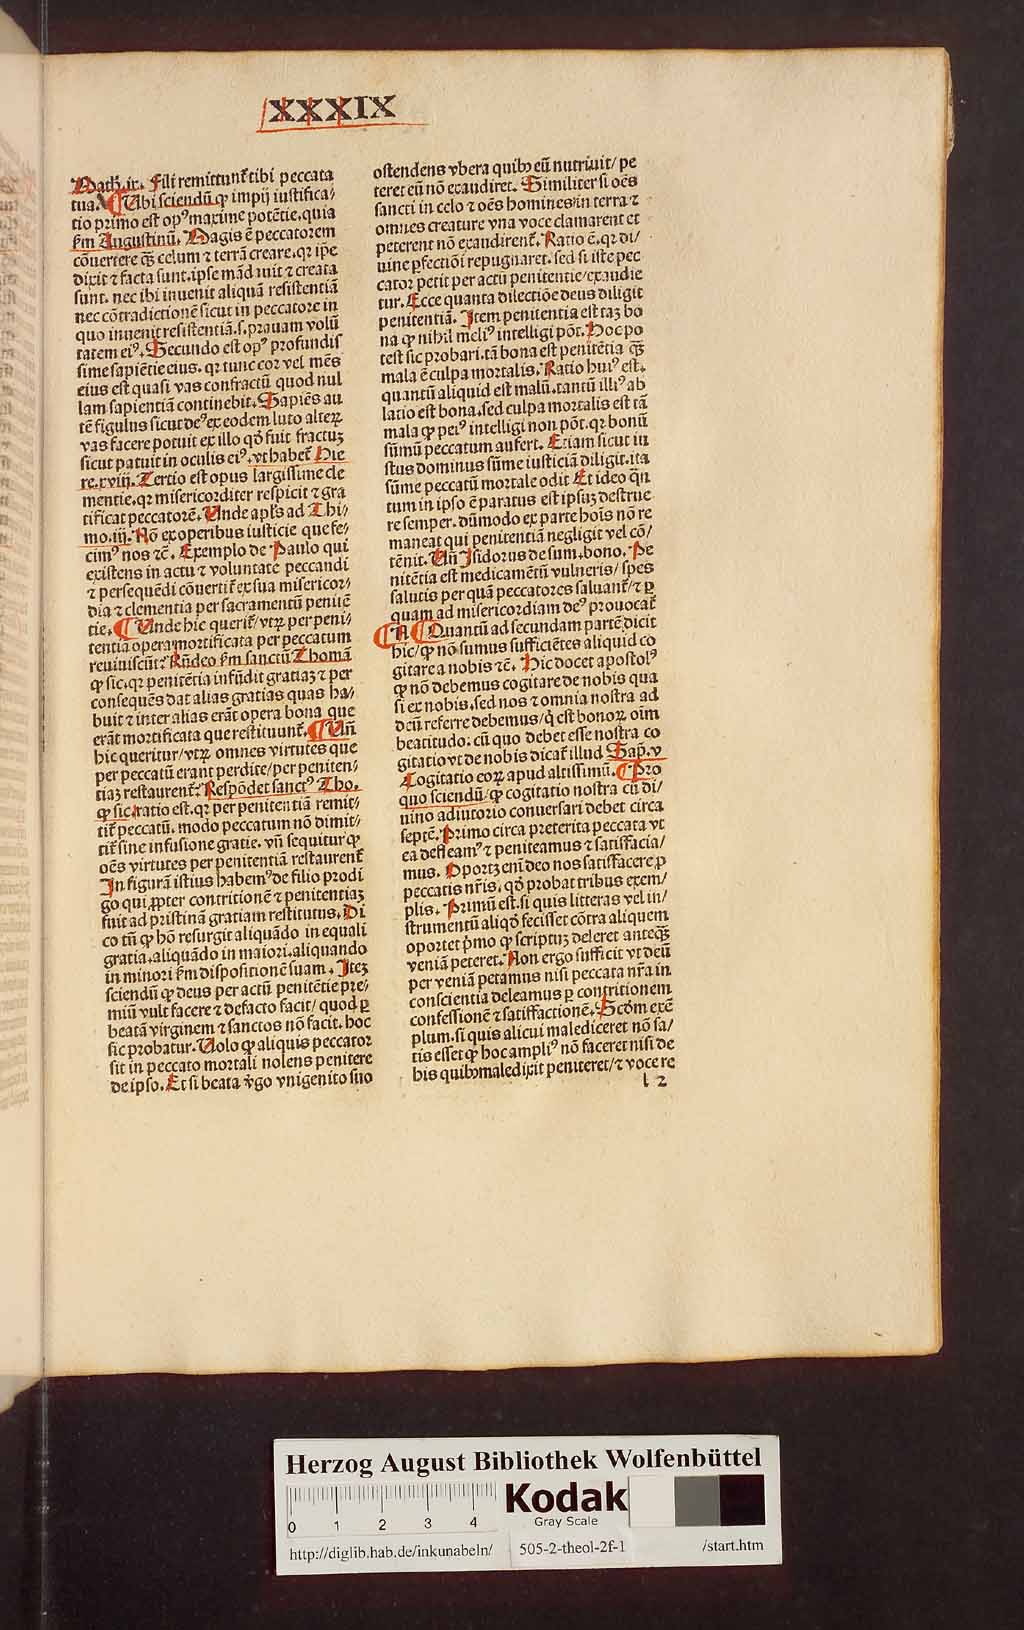 XXXIX
Math. ix. Fili remittunt̃ tibi peccata
tua. ¶ Ubi sciendũ ꝙ impij iustifica/
tio primo est op⁹ maxime potẽtie. quia
ẜm Augustinũ. Magis ẽ peccatorem
cõuertere qz̃ celum ⁊ terrã creare. qꝛ ipe
dixit ⁊ facta sunt. ipse mãdauit ⁊ creata
sunt. nec ibi inuenit aliquã resistentiã
nec cõtradictionẽ sicut in peccatore in
quo inuenit resistentiã. s. prauam volũ
tatem ei⁹. Secundo est op⁹ profundis
sime sapiẽtie eius. qꝛ tunc cor vel mẽs
eius est quasi vas confractũ quod nul
lam sapientiã continebit. Sapiẽs au
tẽ figulus sicut de⁹ ex eodem luto alteꝝ
vas facere potuit ex illo qđ fuit fractuz
sicut patuit in oculis ei⁹. vt habet̃ Hie
re. xviij. Tertio est opus largissime cle
mentie. qꝛ misericorditer respicit ⁊ gra
tificat peccatorẽ. Unde apl̃s ad Thi/
mo. iij. Nõ ex operibus iusticie que fe/
cim⁹ nos ⁊c̃. Exemplo de Paulo qui
existens in actu ⁊ voluntate peccandi
⁊ persequẽdi cõuertit̃ ex sua misericor/
dia ⁊ clementia per sacramentũ penitẽ
tie. ¶ Unde hic querit̃/ vtꝝ per peni/
tentia opera mortificata per peccatum
reuiuiscũt. Rñdeo ẜm sanctũ Thomã
ꝙ sic. qꝛ penitẽtia infũdit gratiaz ⁊ per
consequẽs dat alias gratias quas ha/
buit ⁊ inter alias erãt opera bona que
erãt mortificata que restituunt̃. ¶ Uñ
hic queritur/ vtꝝ omnes virtutes que
per peccatũ erant perdite/ per peniten/
tiaz restaurent̃. Respõdet sanct⁹ Tho.
ꝙ sic. ratio est. qꝛ per penitentiã remit/
tit̃ peccatũ. modo peccatum nõ dimit/
tit̃ sine infusione gratie. vñ sequitur ꝙ
oẽs virtutes per penitentiã restaurent̃
In figurã istius habem⁹ de filio prodi
go qui ꝓpter contritionẽ ⁊ penitentiaz
fuit ad pristinã gratiam restitutus. Di
co tñ ꝙ hõ resurgit aliquãdo in equali
gratia. aliquãdo in maiori. aliquando
in minori ẜm dispositionẽ suam. Itez
sciendũ ꝙ deus per actũ penitẽtie pre/
miũ vult facere ⁊ defacto facit/ quod ꝑ
beatã virginem ⁊ sanctos nõ facit. hoc
sic probatur. Uolo ꝙ aliquis peccator
sit in peccato mortali nolens penitere
de ipso. Et si beata v̉go vnigenito suo
ostendens vbera quibꝰ eũ nutriuit/ pe
teret eũ nõ exaudiret. Similiter si oẽs
sancti in celo ⁊ oẽs homines in terra ⁊
omnes creature vna voce clamarent et
peterent nõ exaudirent̃. Ratio ẽ. qꝛ di/
uine ꝑfectiõi repugnaret. sed si iste pec
cator petit per actũ penitentie/ exaudie
tur. Ecce quanta dilectiõe deus diligit
penitentiã. Item penitentia est taz bo
na ꝙ nihil meli⁹ intelligi põt. Hoc po
test sic probari. tã bona est penitẽtia qz̃
mala ẽ culpa mortalis. Ratio hui⁹ est.
quantũ aliquid est malũ. tantũ illi⁹ ab
latio est bona. sed culpa mortalis est tã
mala ꝙ pei⁹ intelligi non põt. qꝛ bonũ
sũmũ peccatum aufert. Etiam sicut iu
stus dominus sũme iusticiã diligit. ita
sũme peccatũ mortale odit Et ideo q̃n
tum in ipso ẽ paratus est ipsuz destrue
re semper. dũmodo ex parte hoĩs nõ re
maneat qui penitentiã negligit vel cõ/
tẽnit. Uñ Isidorus de sum. bono. Pe
nitẽtia est medicamẽtũ vulneris/ spes
salutis per quã peccatores saluant̃/ ⁊ ꝑ
quam ad misericordiam de⁹ prouocat̃
¶ A ¶ Quantũ ad secundam partẽ dicit
hic/ ꝙ nõ sumus sufficiẽtes aliquid co
gitare a nobis ⁊c̃. Hic docet apostol⁹
ꝙ nõ debemus cogitare de nobis qua
si ex nobis. sed nos ⁊ omnia nostra ad
deũ referre debemus/ q̇ est bonoꝝ oĩm
beatitudo. cũ quo debet esse nostra co
gitatio vt de nobis dicat̃ illud Sap. v
Cogitatio eoꝝ apud altissimũ. ¶ Pro
quo sciendũ/ ꝙ cogitatio nostra cũ di/
uino adiutorio conuersari debet circa
septẽ. Primo circa preterita peccata vt
ea defleam⁹ ⁊ peniteamus ⁊ satisfacia/
mus. Oportz enĩ deo nos satisfacere ꝓ
peccatis nr̃is. qđ probat tribus exem/
plis. Primũ est. si quis litteras vel in/
strumentũ aliqđ fecisset cõtra aliquem
oportet p̃mo ꝙ scriptuz deleret anteqz̃
veniã peteret. Non ergo sufficit vt deũ
per veniã petamus nisi peccata nr̃a in
conscientia deleamus ꝑ contritionem
confessionẽ ⁊ satisfactionẽ. Scđm exẽ
plum. si quis alicui malediceret nõ sa/
tis esset ꝙ hoc ampli⁹ nõ faceret nisi de
his quibꝰ maledixit peniteret/ ⁊ voce re
l 2
Herzog August Bibliothek Wolfenbüttel
0 1 2 3 4
Kodak
Gray Scale
http://diglib.hab.de/inkunabeln/ 505-2-theol-2f-1 /start.htm